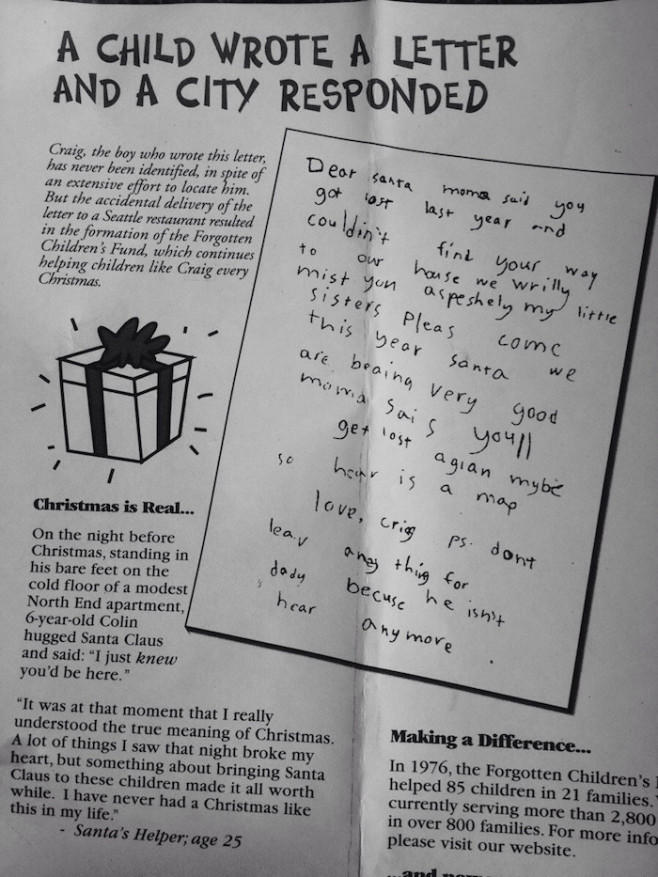 A CHILD WROTE A LETTER
AND A CITY RESPONDED
Craig, the boy who wrote this letter,
has never been identified, in spite of
an extensive effort to locate him.
But the accidental delivery of the
letter to a Seattle restaurant resulted
in the formation of the Forgotten
Children's Fund, which continues
helping children like Craig every
Christmas.
Dear santa moma said you
got lost last year and
couldin't find your way
to our house we wrilly
mist you aspeshely my little
sisters Pleas come
this year santa we
are beaing very good
moma sais you'll
get lost agian mybe
so hear is a map
love, crig ps. dont
leav aney thing for
dady becuse he isn't
hear any more.
Christmas is Real...
On the night before
Christmas, standing in
his bare feet on the
cold floor of a modest
North End apartment,
6-year-old Colin
hugged Santa Claus
and said: “I just knew
you'd be here.”
“It was at that moment that I really
understood the true meaning of Christmas.
A lot of things I saw that night broke my
heart, but something about bringing Santa
Claus to these children made it all worth
while. I have never had a Christmas like
this in my life.”
- Santa's Helper; age 25
Making a Difference...
In 1976, the Forgotten Children's
helped 85 children in 21 families.
currently serving more than 2,800
in over 800 families. For more info
please visit our website.